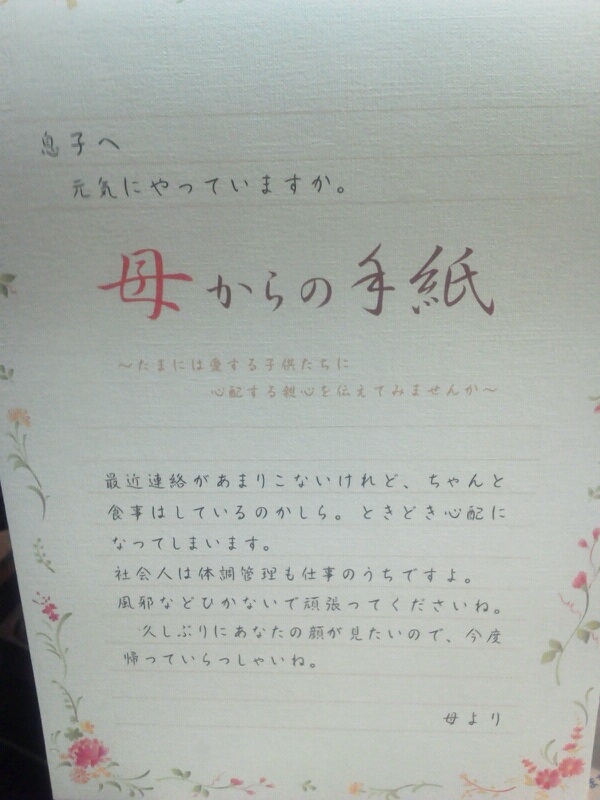 息子へ
元気にやっていますか。
母からの手紙
～たまには愛する子供たちに
心配する親心を伝えてみませんか～
最近連絡があまりこないけれど、ちゃんと
食事はしているのかしら。ときどき心配に
なってしまいます。
社会人は体調管理も仕事のうちですよ。
風邪などひかないで頑張ってくださいね。
久しぶりにあなたの顔が見たいので、今度
帰っていらっしゃいね。
母より